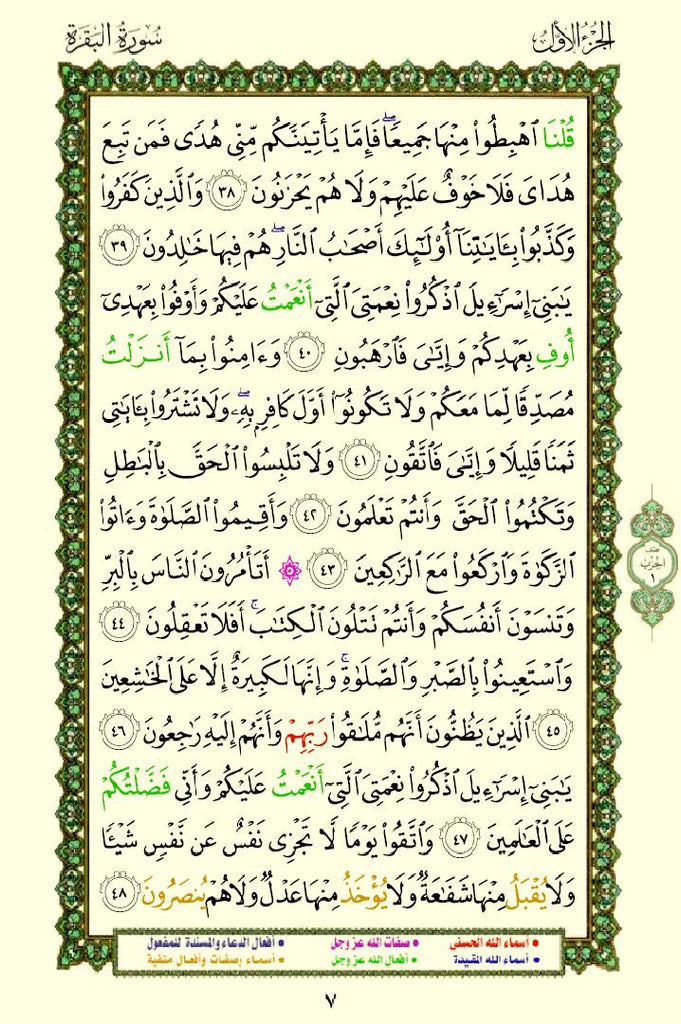 الجزء الأول
سورة البقرة
قُلْنَا ٱهْبِطُوا۟ مِنْهَا جَمِيعًا ۖ فَإِمَّا يَأْتِيَنَّكُم مِّنِّى هُدًى فَمَن تَبِعَ
هُدَاىَ فَلَا خَوْفٌ عَلَيْهِمْ وَلَا هُمْ يَحْزَنُونَ ٣٨ وَٱلَّذِينَ كَفَرُوا۟
وَكَذَّبُوا۟ بِـَٔايَـٰتِنَآ أُو۟لَـٰٓئِكَ أَصْحَـٰبُ ٱلنَّارِ ۖ هُمْ فِيهَا خَـٰلِدُونَ ٣٩
يَـٰبَنِىٓ إِسْرَٰٓءِيلَ ٱذْكُرُوا۟ نِعْمَتِىَ ٱلَّتِىٓ أَنْعَمْتُ عَلَيْكُمْ وَأَوْفُوا۟ بِعَهْدِىٓ
أُوفِ بِعَهْدِكُمْ وَإِيَّـٰىَ فَٱرْهَبُونِ ٤٠ وَءَامِنُوا۟ بِمَآ أَنزَلْتُ
مُصَدِّقًا لِّمَا مَعَكُمْ وَلَا تَكُونُوٓا۟ أَوَّلَ كَافِرٍۭ بِهِۦ ۖ وَلَا تَشْتَرُوا۟ بِـَٔايَـٰتِى
ثَمَنًا قَلِيلًا وَإِيَّـٰىَ فَٱتَّقُونِ ٤١ وَلَا تَلْبِسُوا۟ ٱلْحَقَّ بِٱلْبَـٰطِلِ
وَتَكْتُمُوا۟ ٱلْحَقَّ وَأَنتُمْ تَعْلَمُونَ ٤٢ وَأَقِيمُوا۟ ٱلصَّلَوٰةَ وَءَاتُوا۟
ٱلزَّكَوٰةَ وَٱرْكَعُوا۟ مَعَ ٱلرَّٰكِعِينَ ٤٣ ۞ أَتَأْمُرُونَ ٱلنَّاسَ بِٱلْبِرِّ
وَتَنسَوْنَ أَنفُسَكُمْ وَأَنتُمْ تَتْلُونَ ٱلْكِتَـٰبَ ۚ أَفَلَا تَعْقِلُونَ ٤٤
وَٱسْتَعِينُوا۟ بِٱلصَّبْرِ وَٱلصَّلَوٰةِ ۚ وَإِنَّهَا لَكَبِيرَةٌ إِلَّا عَلَى ٱلْخَـٰشِعِينَ
٤٥ ٱلَّذِينَ يَظُنُّونَ أَنَّهُم مُّلَـٰقُوا۟ رَبِّهِمْ وَأَنَّهُمْ إِلَيْهِ رَٰجِعُونَ ٤٦
يَـٰبَنِىٓ إِسْرَٰٓءِيلَ ٱذْكُرُوا۟ نِعْمَتِىَ ٱلَّتِىٓ أَنْعَمْتُ عَلَيْكُمْ وَأَنِّى فَضَّلْتُكُمْ
عَلَى ٱلْعَـٰلَمِينَ ٤٧ وَٱتَّقُوا۟ يَوْمًا لَّا تَجْزِى نَفْسٌ عَن نَّفْسٍ شَيْـًٔا
وَلَا يُقْبَلُ مِنْهَا شَفَـٰعَةٌ وَلَا يُؤْخَذُ مِنْهَا عَدْلٌ وَلَا هُمْ يُنصَرُونَ ٤٨
نصف
الحزب
١
• أسماء الله الحسنى • صفات الله عز وجل • أفعال الدعاء والمسندة للمفعول
• أسماء الله المقيدة • أفعال الله عز وجل • أسماء وصفات وأفعال منفية
٧